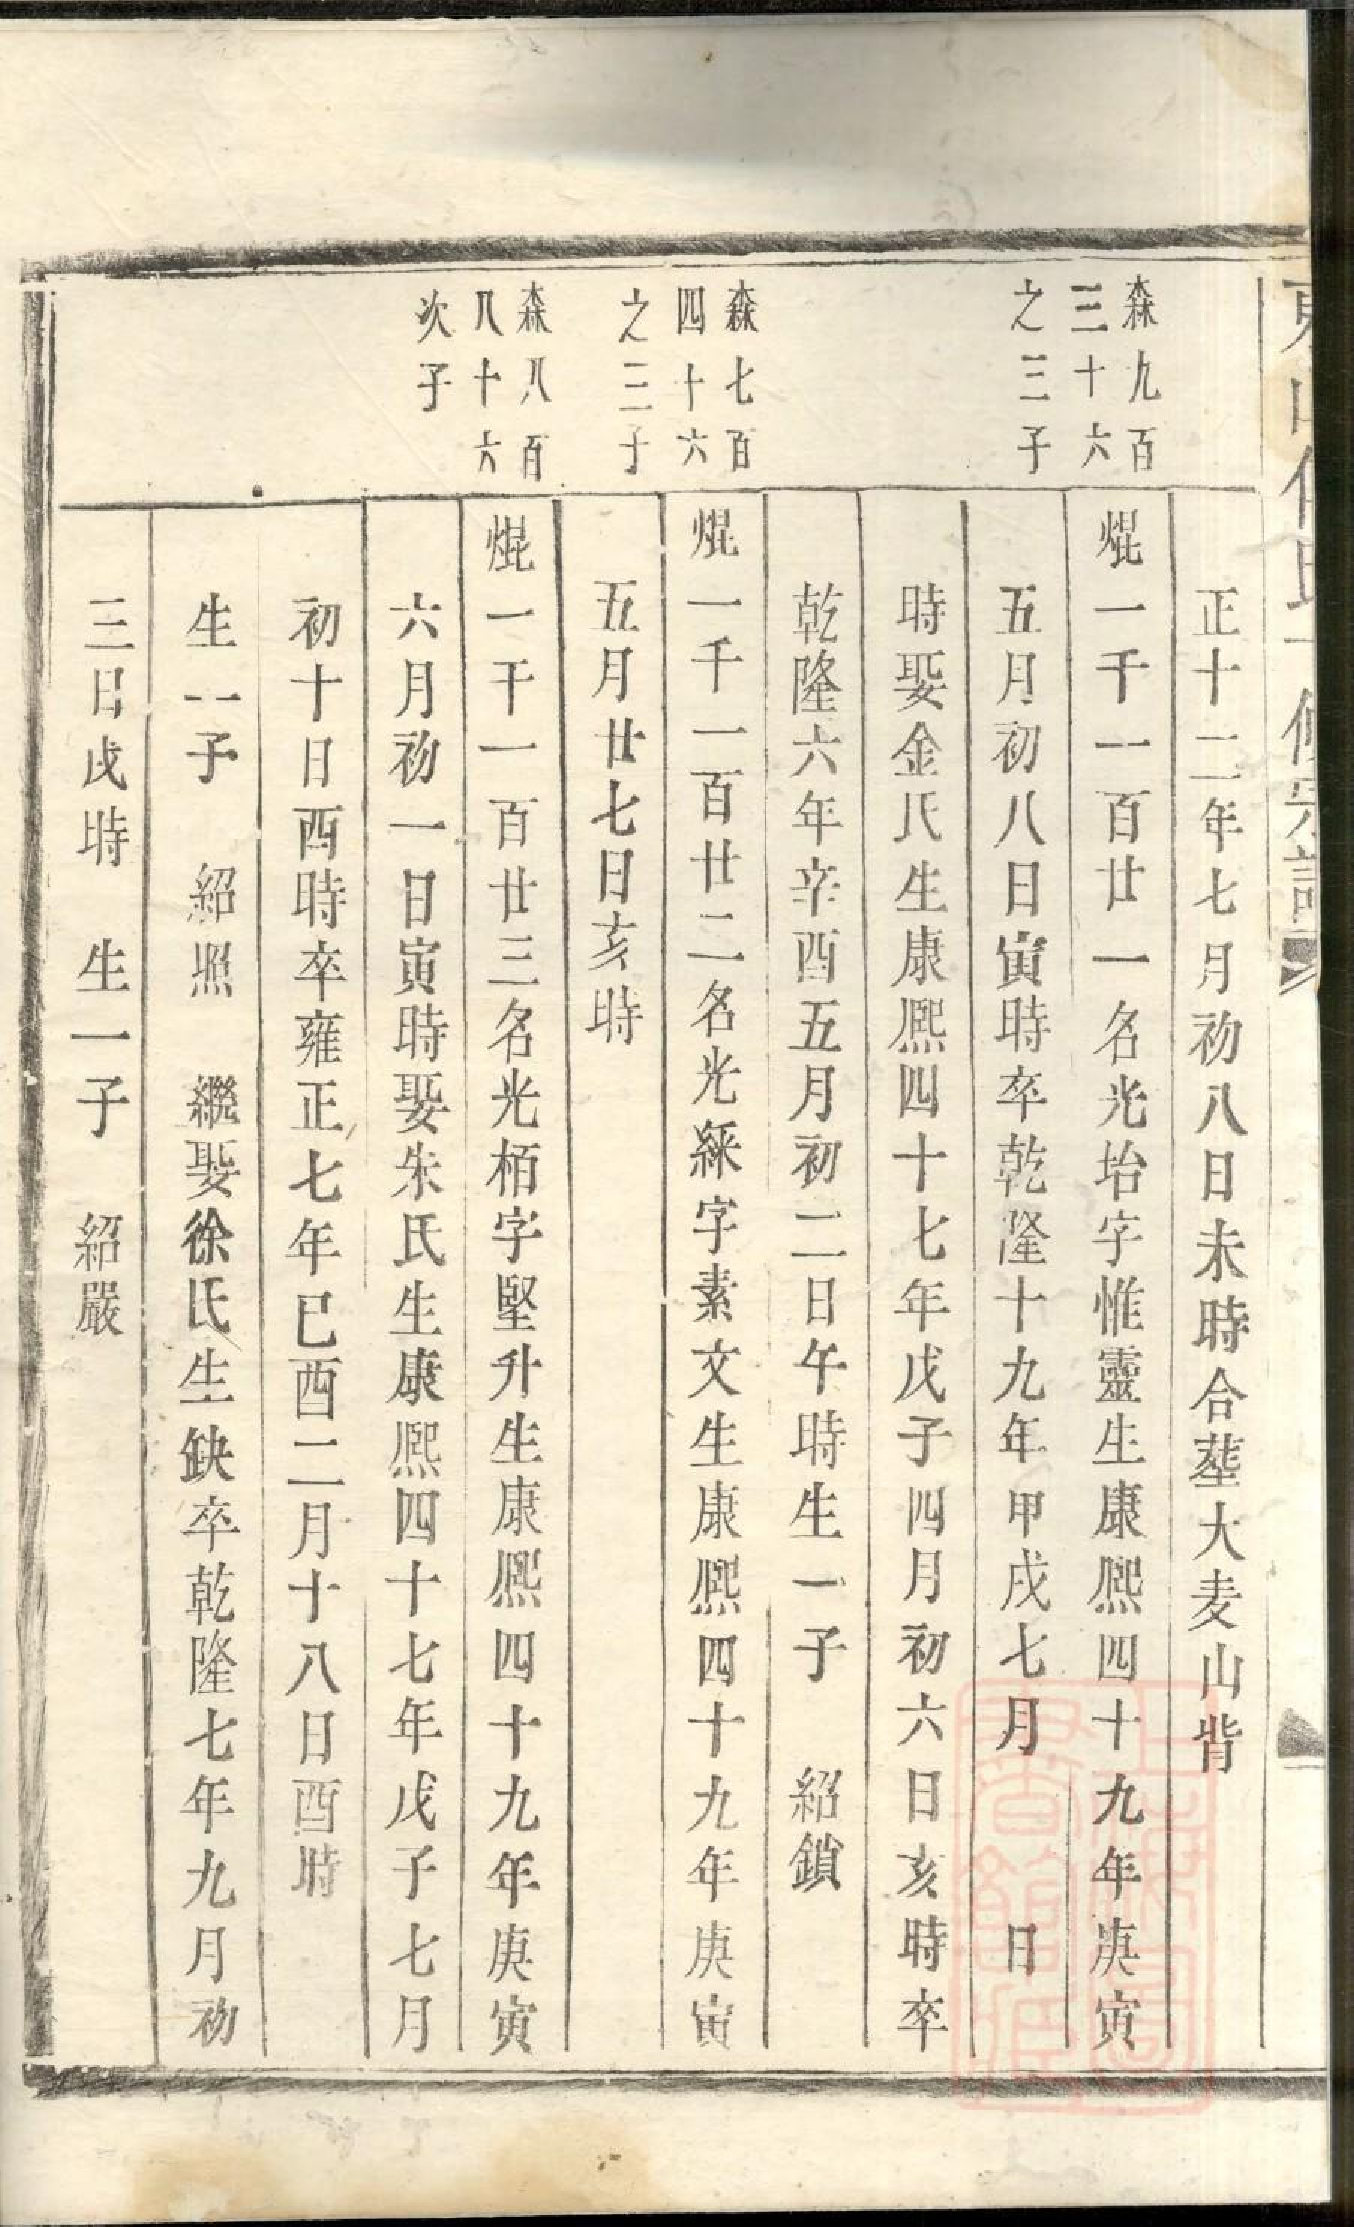 正十二年七月初八日未時合塟大麦山背
森九百
三十六
之三子
焜一千一百廿一名光坮字惟靈生康熙四十九年庚寅
五月初八日寅時卒乾隆十九年甲戌七月　日
時娶金氏生康熙四十七年戊子四月初六日亥時卒
乾隆六年辛酉五月初二日午時生一子　紹鎖
森七百
四十六
之三子
焜一千一百廿二名光綵字素文生康熙四十九年庚寅
五月廿七日亥時
森八百
八十六
次子
焜一千一百廿三名光栢字堅升生康熙四十九年庚寅
六月初一日寅時娶朱氏生康熙四十七年戊子七月
初十日酉時卒雍正七年已酉二月十八日酉時
生一子　紹熈　繼娶徐氏生缺卒乾隆七年九月初
三日戌時　生一子　紹嚴